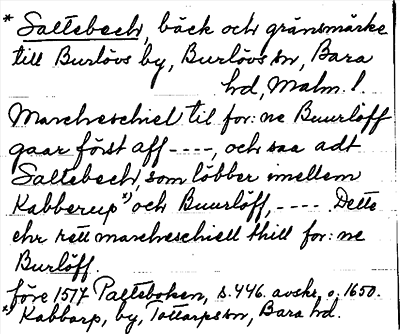 * Saltebech, bäck och gränsmärke
till Burlövs by, Burlövs sn, Bara
hd, Malm. l.
Marcheschiel til for: ne Buurlöff
gaar först aff ----, och saa adt
Saltebech, som löbber imellem
Kabberup *) och Buurlöff, ---- Dette
ehr rett marcheschiell thill for: ne
Burlöff.
före 1577 Palteboken, s. 446. avskr. o. 1650.
*) Kabbarp, by, Tottarps sn, Bara hd.